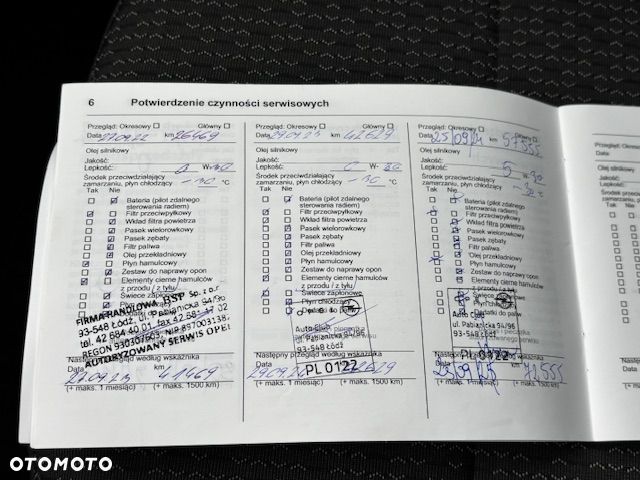 6 Potwierdzenie czynności serwisowych
Przegląd: Okresowy Główny
Data 27.09.22 km 26469
Olej silnikowy
Jakość:
Lepkość: 0 W- 30
Środek przeciwdziałający
zamarzaniu, płyn chłodzący -30 °C
Tak Nie
Bateria (pilot zdalnego
sterowania radiem)
Filtr przeciwpyłkowy
Wkład filtra powietrza
Pasek wielorowkowy
Pasek zębaty
Filtr paliwa
Olej przekładniowy
Płyn hamulcowy
Zestaw do naprawy opon
Elementy cierne hamulców
z przodu / z tyłu
Świece zapłonowe
FIRMA HANDLOWA RSP Sp. z o.o.
93-548 Łódź, ul. Pabianicka 94/96
tel. 42 684 40 01
AUTORYZOWANY SERWIS OPEL
Następny przegląd według wskaźnika
Data km
27.09.23 41469
(+ maks. 1 miesiąc) (+ maks. 1500 km)
Przegląd: Okresowy Główny
Data 29.09.23 km 42629
Olej silnikowy
Jakość:
Lepkość: 0 W- 30
Środek przeciwdziałający
zamarzaniu, płyn chłodzący -30 °C
Tak Nie
Bateria (pilot zdalnego
sterowania radiem)
Filtr przeciwpyłkowy
Wkład filtra powietrza
Pasek wielorowkowy
Pasek zębaty
Filtr paliwa
Olej przekładniowy
Płyn hamulcowy
Zestaw do naprawy opon
Elementy cierne hamulców
z przodu / z tyłu
Świece zapłonowe
Płyn chłodzący
Dodatki do paliw
Auto Club
ul. Pabianicka 94/96
93-548 Łódź
PL 0122
Następny przegląd według wskaźnika
Data km
29.09.24
(+ maks. 1 miesiąc) (+ maks. 1500 km)
Przegląd: Okresowy Główny
Data 25/09/24 km 57555
Olej silnikowy
Jakość:
Lepkość: 5 W- 30
Środek przeciwdziałający
zamarzaniu, płyn chłodzący °C
Tak Nie
Bateria (pilot zdalnego
sterowania radiem)
Filtr przeciwpyłkowy
Wkład filtra powietrza
Pasek wielorowkowy
Pasek zębaty
Filtr paliwa
Olej przekładniowy
Płyn hamulcowy
Zestaw do naprawy opon
Elementy cierne hamulców
z przodu / z tyłu
Świece zapłonowe
Płyn chłodzący
Dodatki do paliw
Auto Club
ul. Pabianicka 94/96
93-548 Łódź
PL 0122
Następny przegląd według wskaźnika
Data km
25/09/25 72555
(+ maks. 1 miesiąc) (+ maks. 1500 km)
OTOMOTO